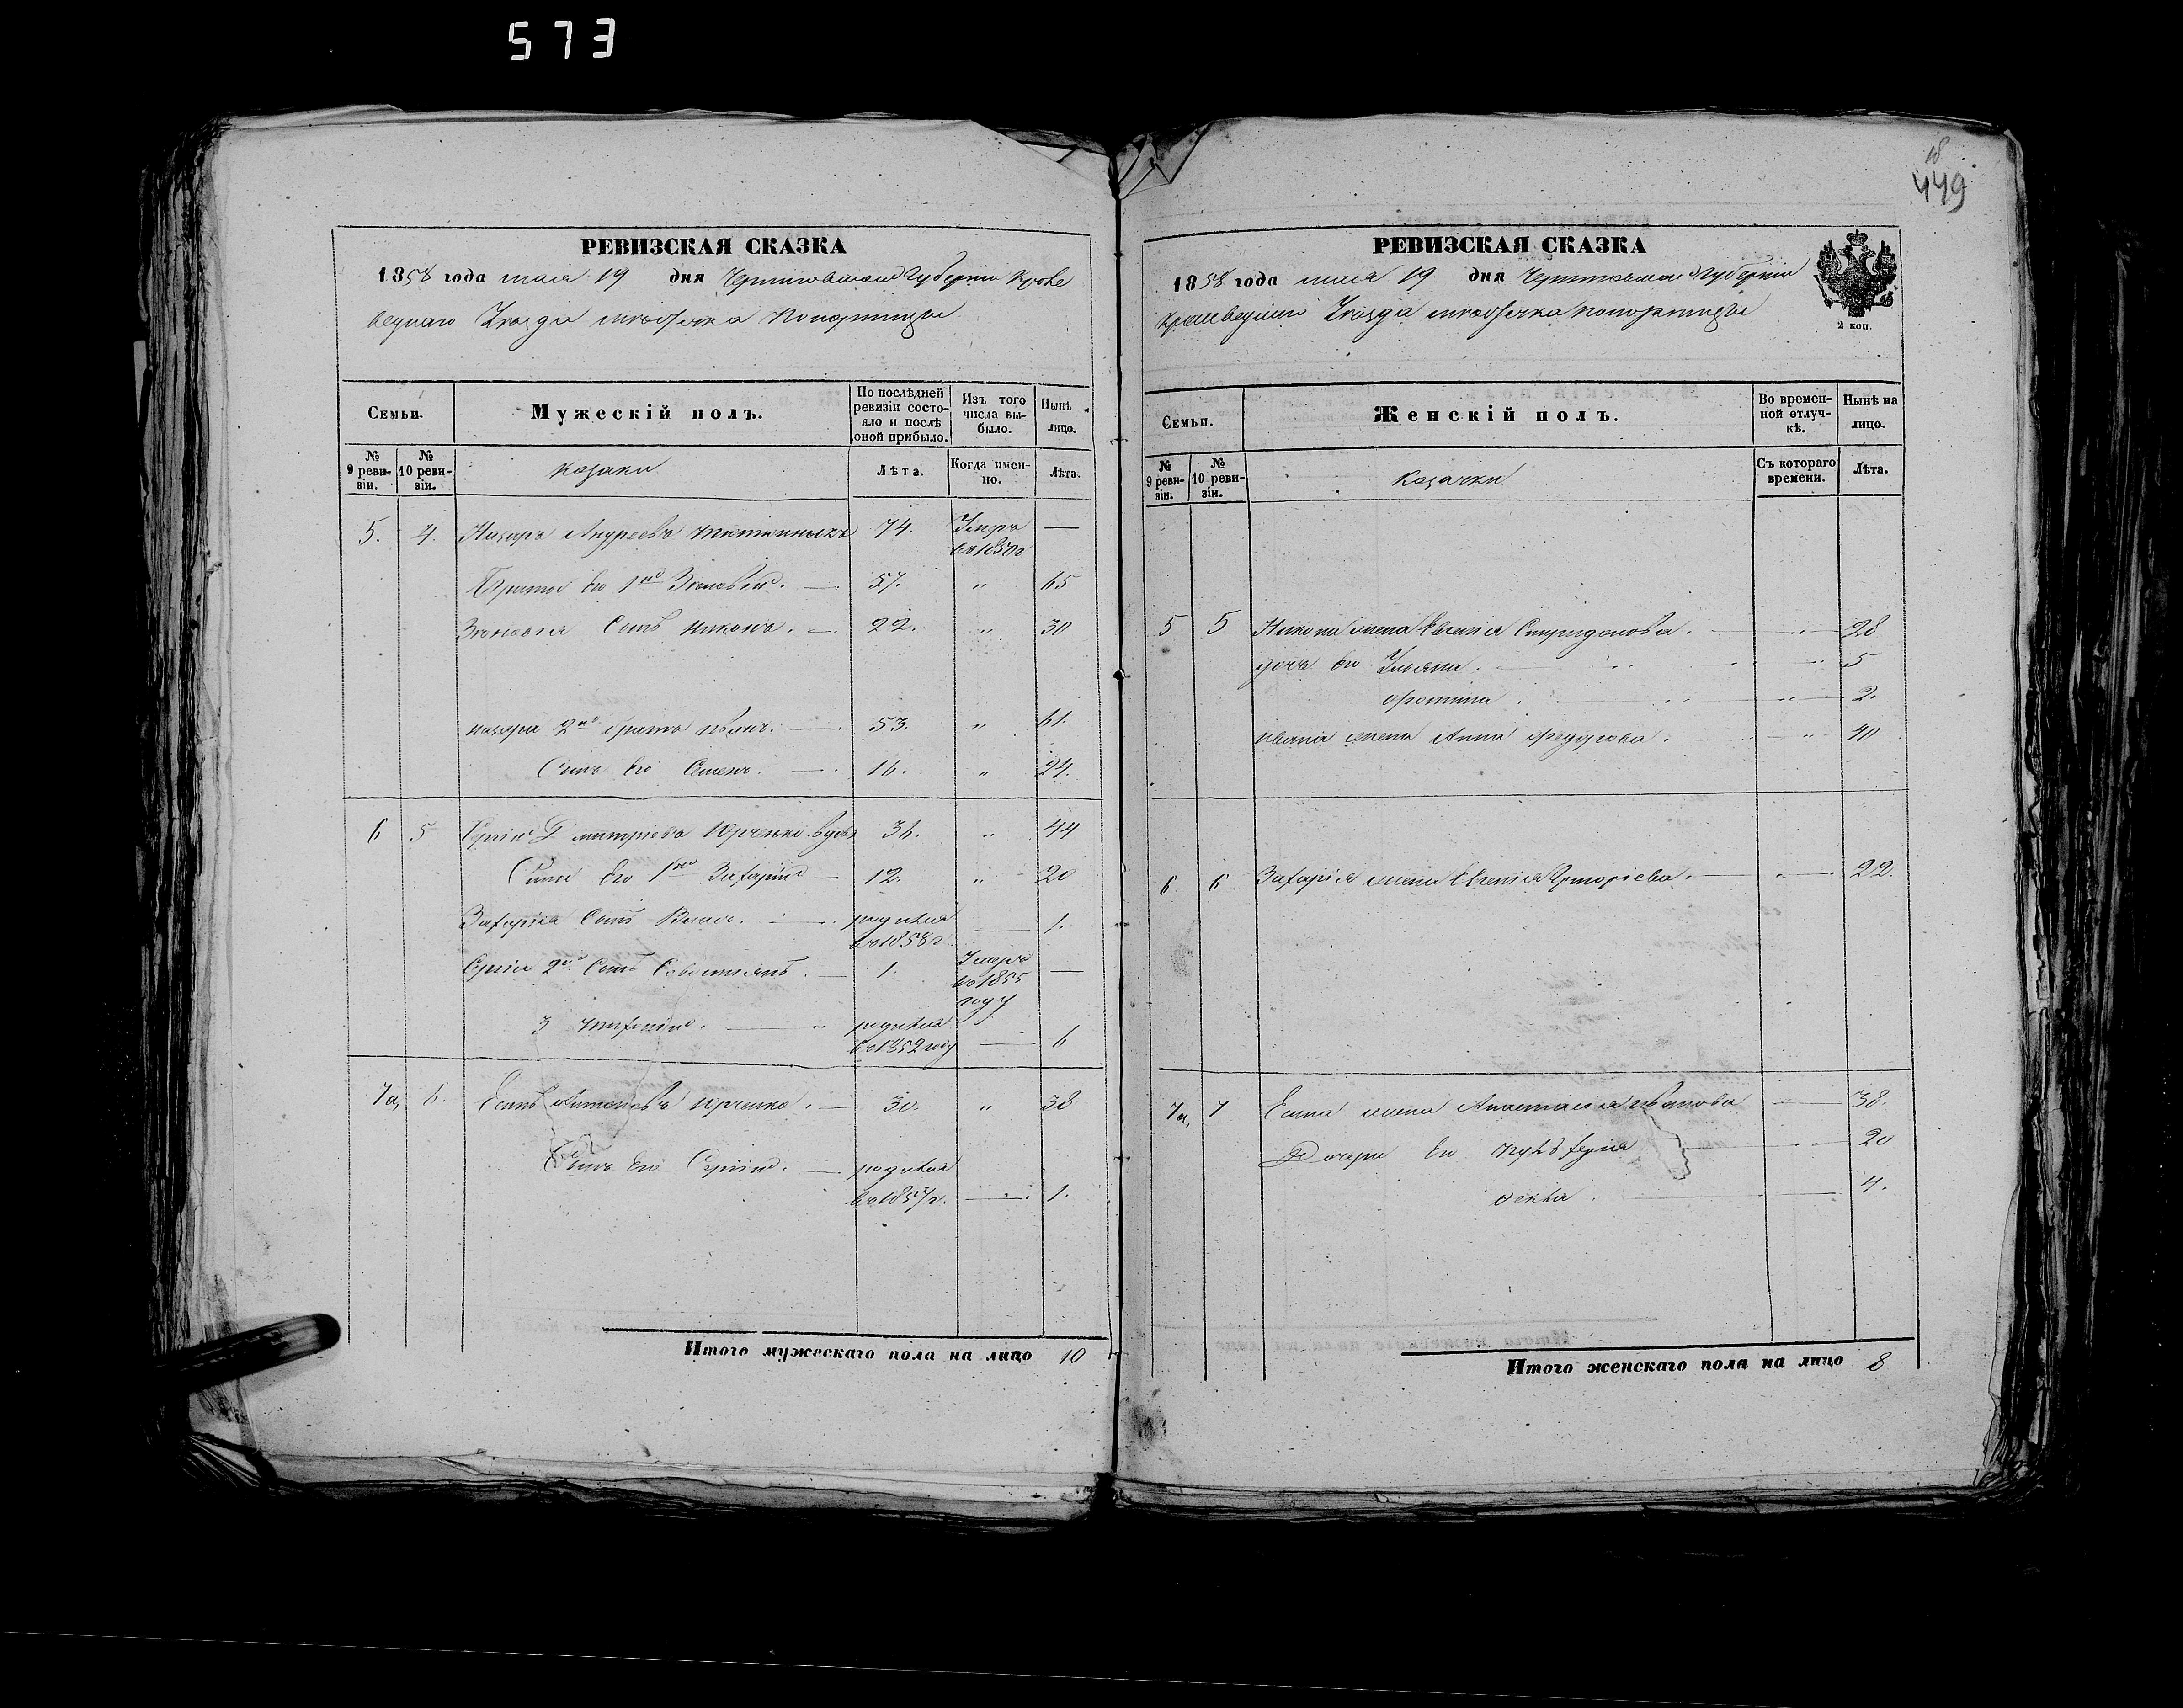 573
18
449
РЕВИЗСКАЯ СКАЗКА
1858 года мая 19 дня Черниговской Губернии Кроле
вецкаго Уезда местечка Понорницы
Семьи.
Мужескій полъ.
По послѣдней ревизіи состояло и послѣ оной прибыло.
Изъ того числа выбыло.
Нынѣ лицо.
№ 9 ревизіи.
№ 10 ревизіи.
козаки
Лѣта.
Когда именно.
Лѣта.
5. 4. Назаръ Андреевъ 74. Умеръ —
въ 1850 г
Братья его 1й Зиновій. — 57. " 65
Зиновія Сынъ Никонъ. — 22. " 30
Назара 2й братъ Иванъ. — 53. " 61.
Сынъ его Семенъ. — 16. " 24.
6 5 Сергій Дмитріевъ Юрченко вдовъ 36. " 44
Сыны его 1й Захарій — 12. " 20
Захарія Сынъ — родился — 1.
въ 1858 г.
Сергія 2й Сынъ — 1. Умеръ —
въ 1855
году
3 — родился
въ 1852 году — 6
7а, 6. Юрченко. — 30. " 38
Сынъ его Сергій. — родился
въ 1857 г. — 1.
Итого мужескаго пола на лицо 10
РЕВИЗСКАЯ СКАЗКА
1858 года мая 19 дня Черниговской Губерніи
Кролевецкаго Уезда местечка Понорницы
2 коп.
Семьи.
Женскій полъ.
Во временной отлучкѣ.
Нынѣ на лицо.
№ 9 ревизіи.
№ 10 ревизіи.
Козачки
Съ котораго времени.
Лѣта.
5 5 Никона жена Евгенія Спиридонова. — " — 28
дочь его Ульяна. — " — 5
— " — 2.
Ивана жена Анна Федорова. — " — 40
6 6 Захарія жена Евгенія Григоріева. — " — 22.
7а, 7 жена Анастасія Иванова — 38.
Дочери его — " — 20
Фекла. — 4.
Итого женскаго пола на лицо 8